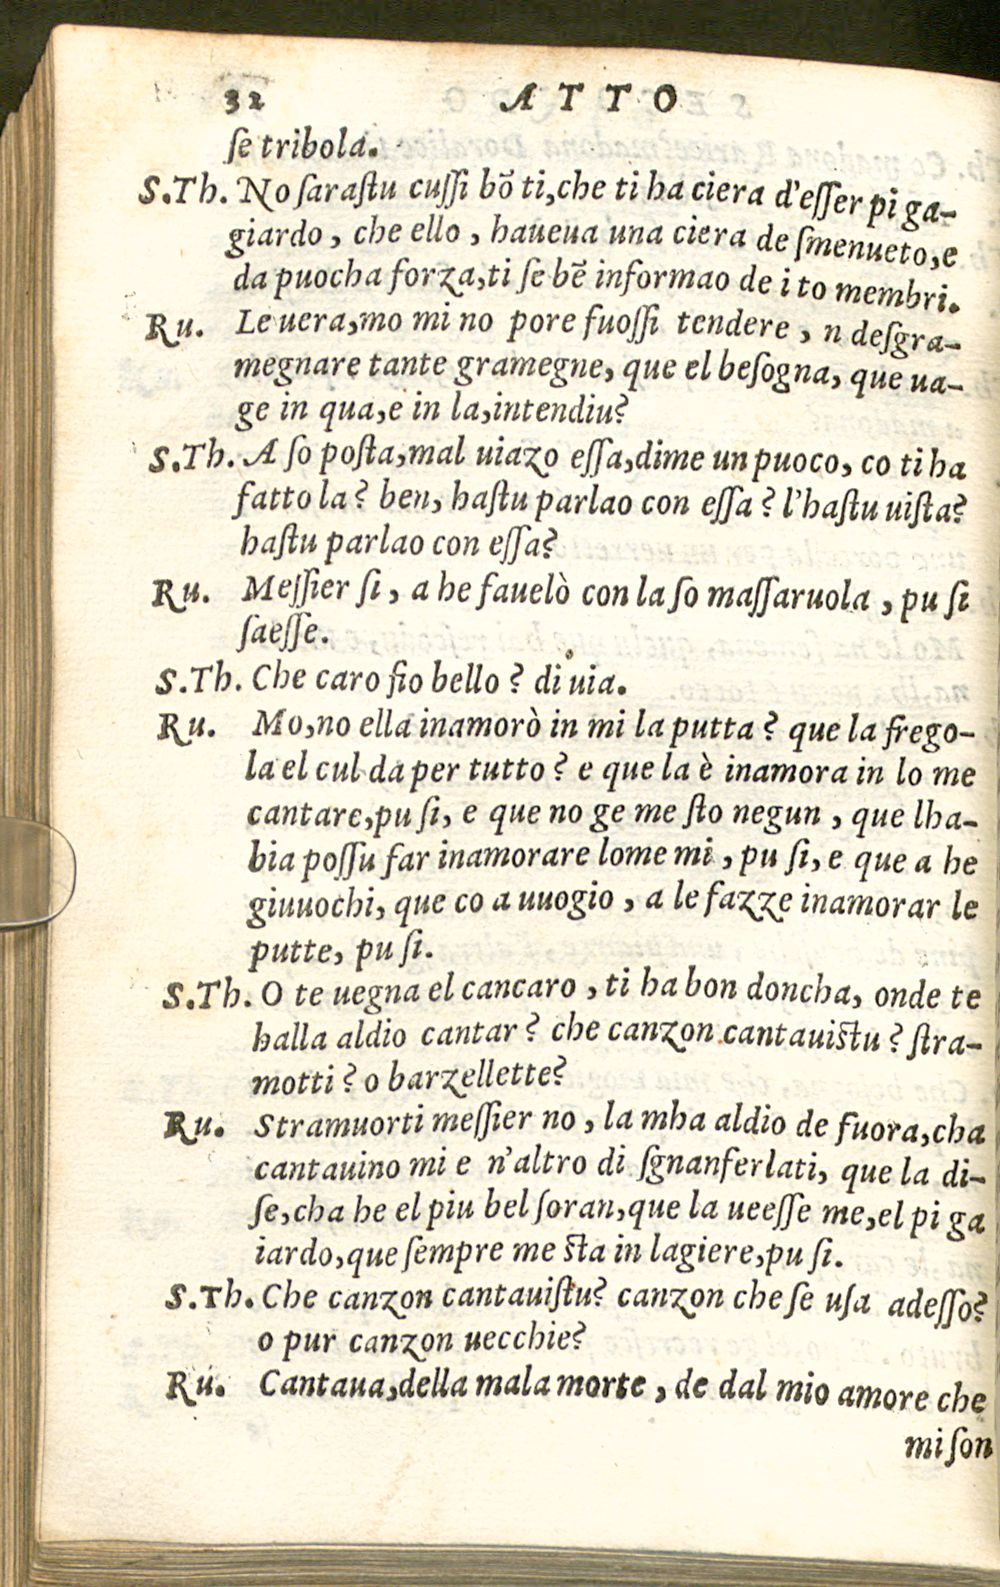 32 ATTO
ſe tribola.
S.Th. No ſaraſtu cuſſi bõ ti, che ti ha ciera d'eſſer pi ga-
giardo, che ello, haueua una ciera de ſmenueto, e
da puocha forza, ti ſe bẽ informao de i to membri.
Ru. Le uera, mo mi no pore fuoſſi tendere, n deſgra-
megnare tante gramegne, que el beſogna, que ua-
ge in qua, e in la, intendiu?
S.Th. A ſo poſta, mal uiazo eſſa, dime un puoco, co ti ha
fatto la? ben, haſtu parlao con eſſa? l'haſtu uiſta?
haſtu parlao con eſſa?
Ru. Meſſier ſi, a he fauelò con la ſo maſſaruola, pu ſi
ſaeſſe.
S.Th. Che caro fio bello? di uia.
Ru. Mo, no ella inamorò in mi la putta? que la frego-
la el cul da per tutto? e que la è inamora in lo me
cantare, pu ſi, e que no ge me ſto negun, que lha-
bia poſſu far inamorare lome mi, pu ſi, e que a he
giuuochi, que co a uuogio, a le fazze inamorar le
putte, pu ſi.
S.Th. O te uegna el cancaro, ti ha bon doncha, onde te
halla aldio cantar? che canzon cantauiſtu? ſtra-
motti? o barzellette?
Ru. Stramuorti meſſier no, la mha aldio de fuora, cha
cantauino mi e n'altro di ſgnanferlati, que la di-
ſe, cha he el piu bel ſoran, que la ueeſſe me, el pi ga
iardo, que ſempre me ſta in lagiere, pu ſi.
S.Th. Che canzon cantauiſtu? canzon che ſe uſa adeſſo?
o pur canzon uecchie?
Ru. Cantaua, della mala morte, de dal mio amore che
mi ſon